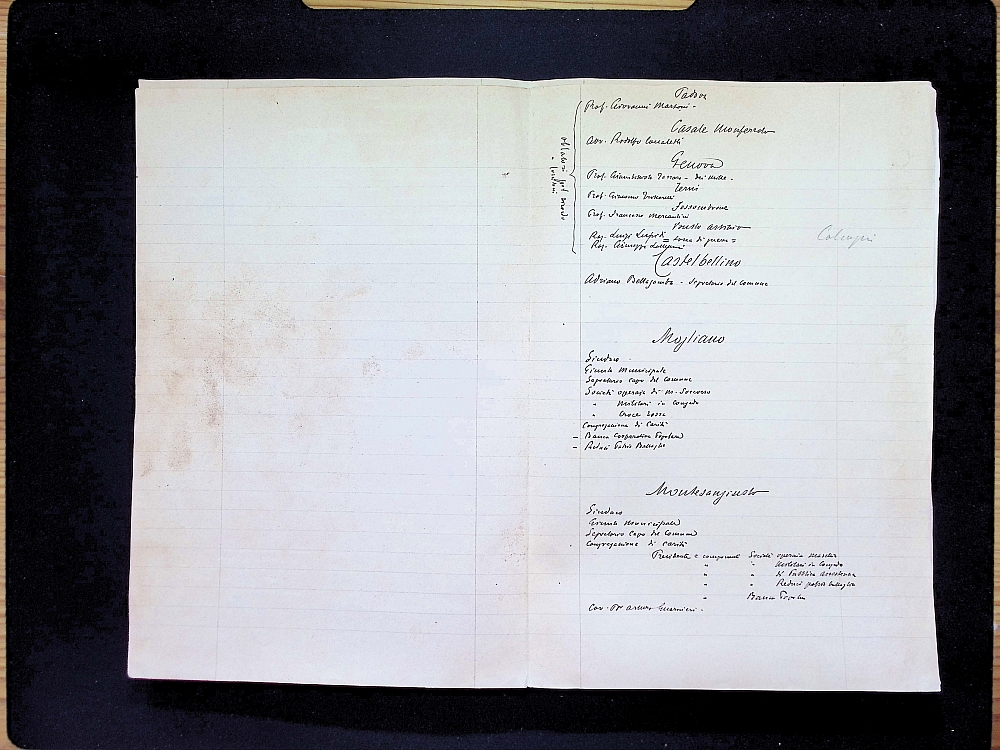 Padova
Prof. Giovanni Marconi -
Casale Monferrato
Avv. Rodolfo
Genova
Prof. Giambattista - dei mille -
Terni
Prof. Giacomo
Fossombrone
Prof. Francesco Mercantini
Rag. Luigi = zona di guerra =
Rag. Giuseppe
Castelbellino
Adriano Bellagamba - Segretario del Comune
Mogliano
Sindaco
Giunta Municipale
Segretario capo del Comune
Società operaia di M. Soccorso
" Militari in congedo
" Croce rossa
Congregazione di Carità
- Banca Cooperativa Popolare
- Reduci Patrie Battaglie
Montesangiusto
Sindaco
Giunta Municipale
Segretario Capo del Comune
Congregazione di Carità
Presidente e componenti Società operaia maschile
" " Militari in Congedo
" " di Pubblica assistenza
" " Reduci patrie battaglie
" Banca Popolare
Cav. Dr Arturo Guarnieri -